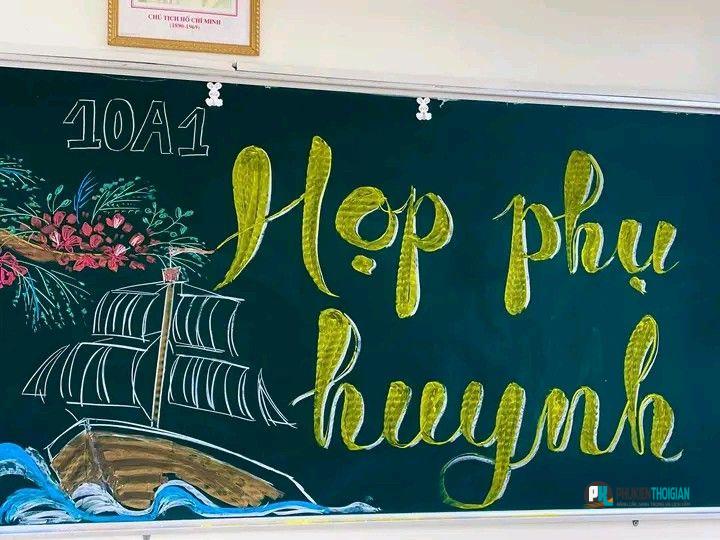 CHỦ TỊCH HỒ CHÍ MINH
(1890-1969)
10A1
Họp phụ
huynh
PHUKIENTHOIGIAN